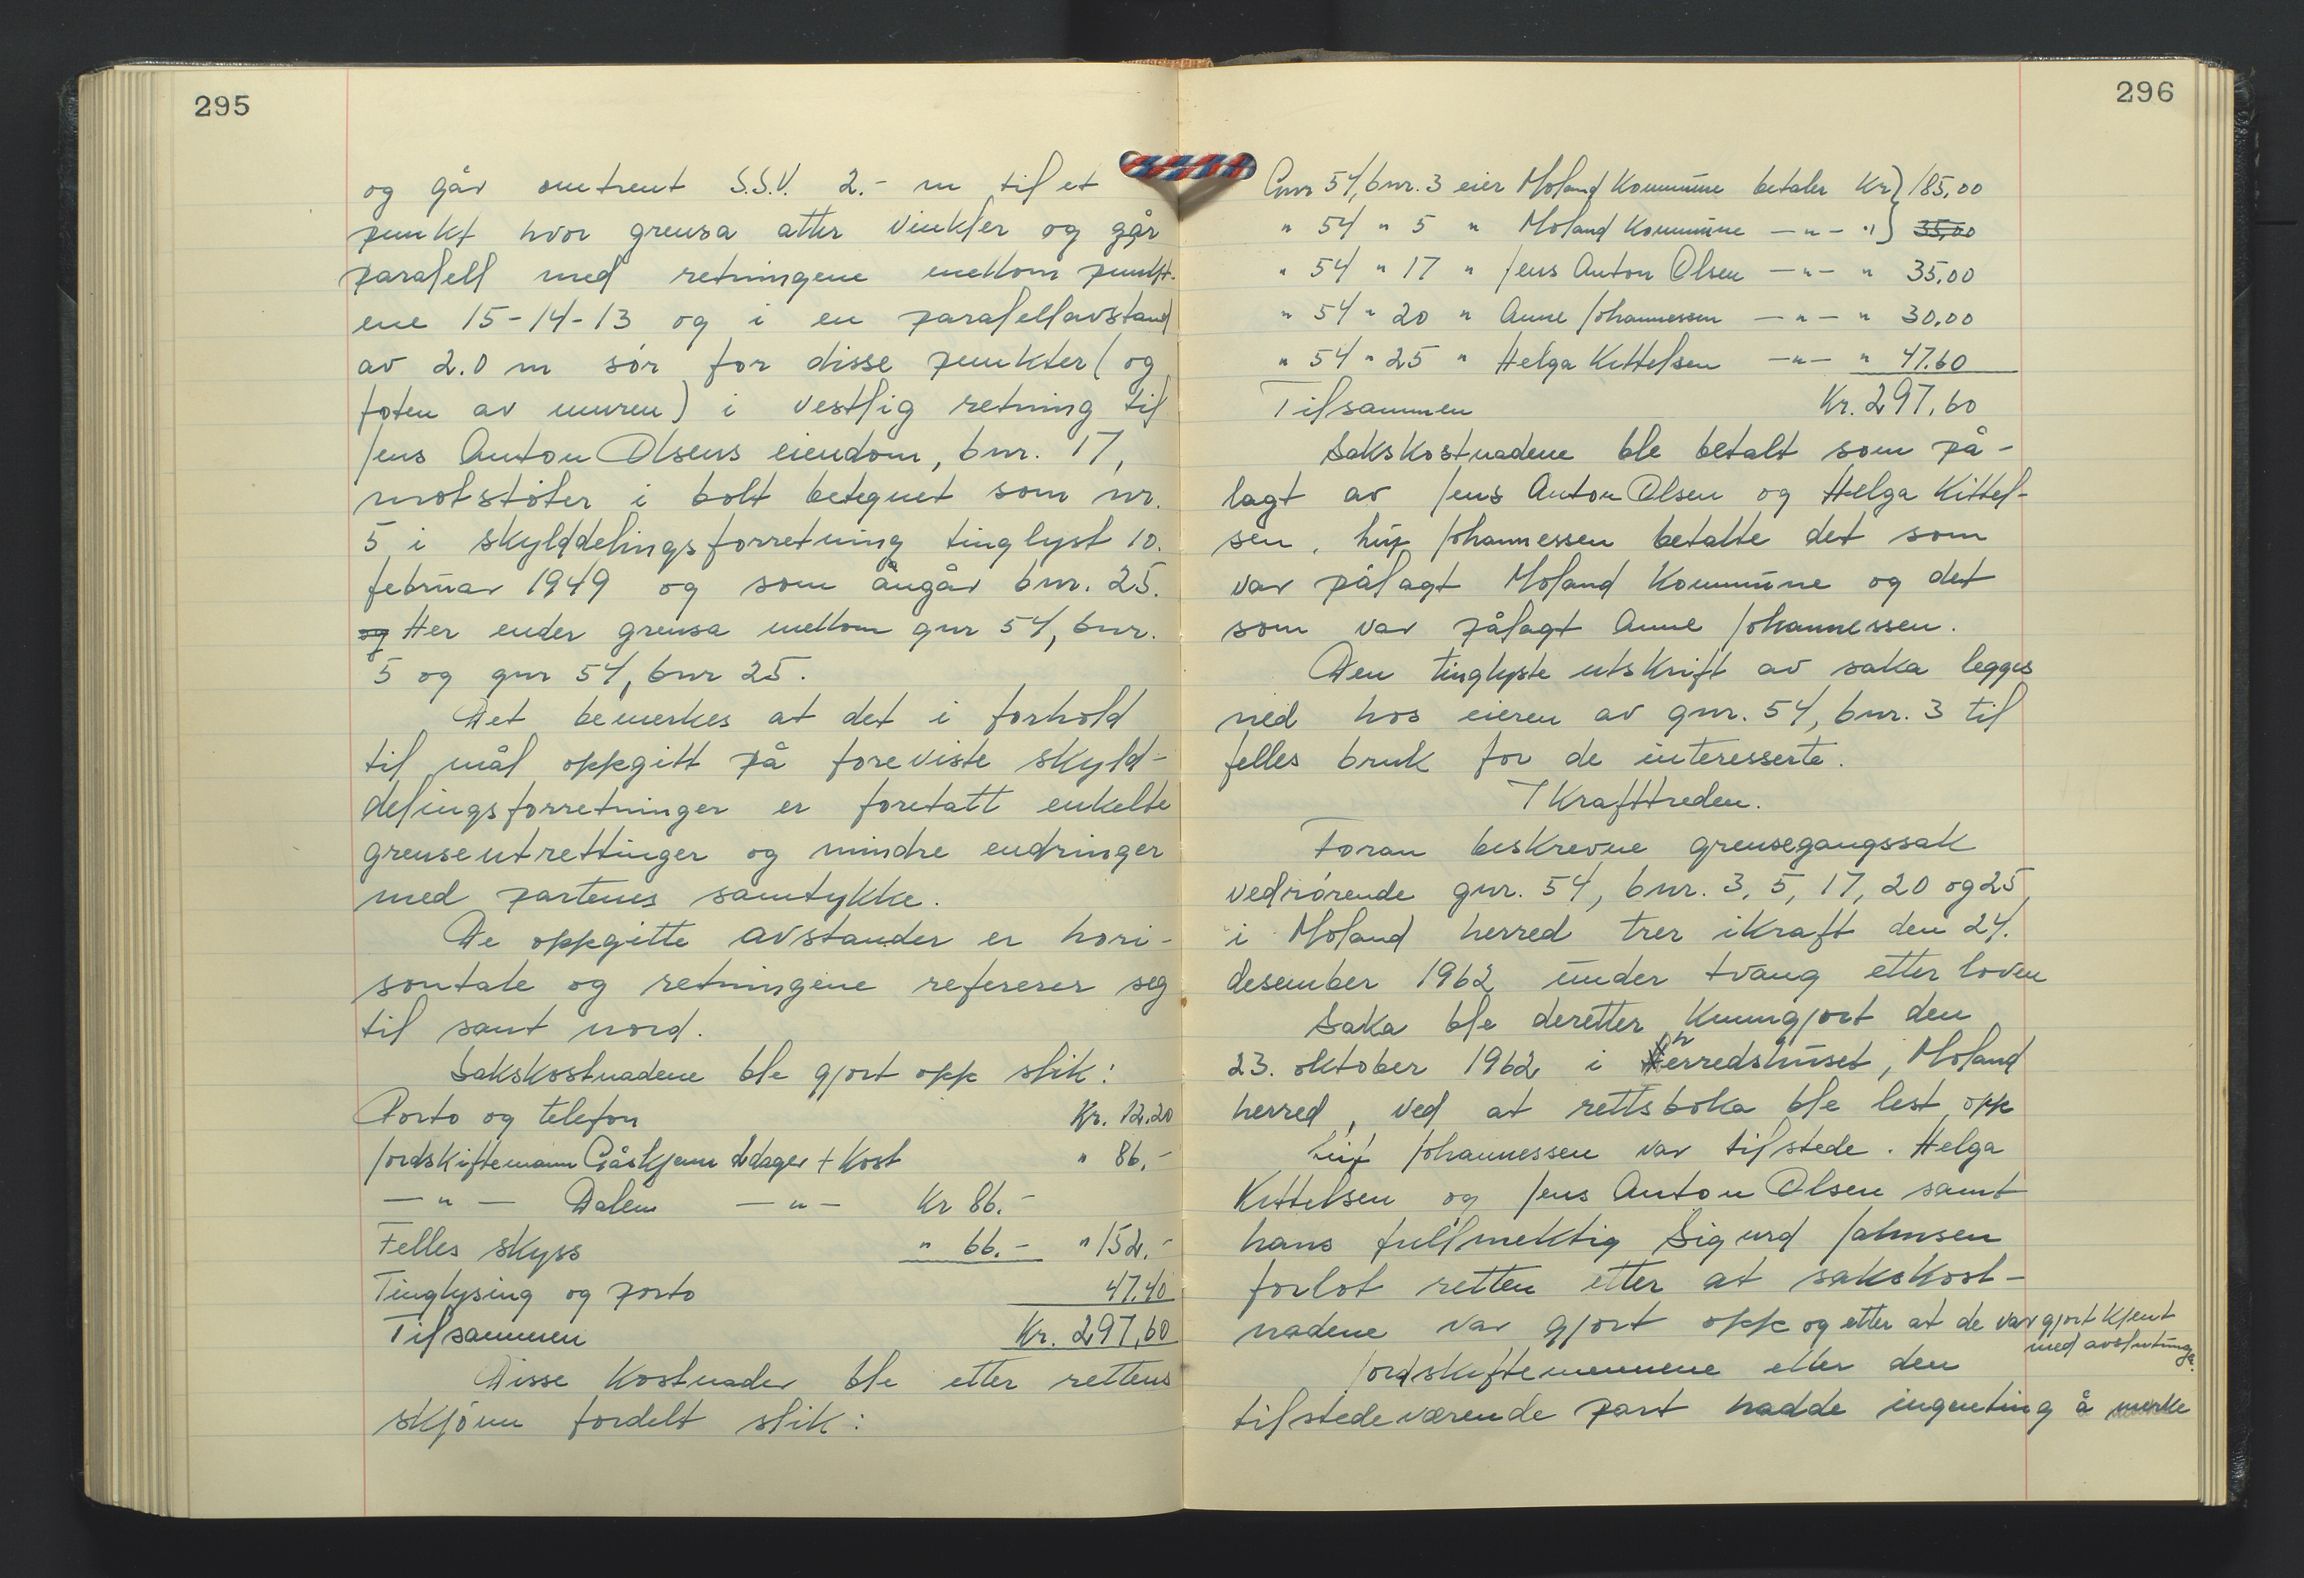 295
og går omtrent S.S.V. 2.- m til et
punkt hvor grensa atter vinkler og går
parallell med retningene mellom punkt-
ene 15-14-13 og i en parallellavstand
av 2.0 m sør for disse punkter (og
foten av muren) i vestlig retning til
Jens Anton Olsens eiendom, bnr. 17,
motstøter i bolt betegnet som nr.
5 i skylddelingsforretning tinglyst 10.
februar 1949 og som angår bnr. 25.
og Her ender grensa mellom gnr 54, bnr.
5 og gnr 54, bnr 25.
Det bemerkes at det i forhold
til mål oppgitt på foreviste skyld-
delingsforretninger er foretatt enkelte
grenseutrettinger og mindre endringer
med partenes samtykke.
De oppgitte avstander er hori-
sontale og retningene refererer seg
til sant nord.
Sakskostnadene ble gjort opp slik:
Porto og telefon Kr. 12.20
Jordskiftemann Gåskjenn 2 dager + kost " 86.-
— " — Dalen — " — Kr 86.-
Felles skyss " 66.- " 152.-
Tinglysing og porto 47.40
Tilsammen Kr. 297,60
Disse kostnader ble etter rettens
skjønn fordelt slik:
296
Gnr 54, bnr. 3 eier Moland Kommune betaler Kr } 185,00
" 54 " 5 " Moland Kommune — " — " } 35,00
" 54 " 17 " Jens Anton Olsen — " — " 35,00
" 54 " 20 " Anne Johannessen — " — " 30,00
" 54 " 25 " Helga Kittelsen — " — " 47.60
Tilsammen Kr. 297,60
Sakskostnadene ble betalt som på-
lagt av Jens Anton Olsen og Helga Kittel-
sen. Johannessen betalte det som
var pålagt Moland Kommune og det
som var pålagt Anne Johannessen.
Den tinglyste utskrift av saka legges
ned hos eieren av gnr. 54, bnr. 3 til
felles bruk for de interesserte.
Ikrafttreden.
Foran beskrevne grensegangssak
vedrørende gnr. 54, bnr. 3, 5, 17, 20 og 25,
i Moland herred trer ikraft den 24.
desember 1962 under tvang etter loven
Saka ble deretter kunngjort den
23. oktober 1962 i herredshuset, Moland
herred, ved at rettsboka ble lest opp
Johannessen var tilstede. Helga
Kittelsen og Jens Anton Olsen samt
hans fullmektig Sigurd Jahnsen
forlot retten etter at sakskost-
nadene var gjort opp og etter at de var gjort kjent
med avslutninga.
Jordskiftemennene eller den
tilstedeværende part hadde ingenting å merke